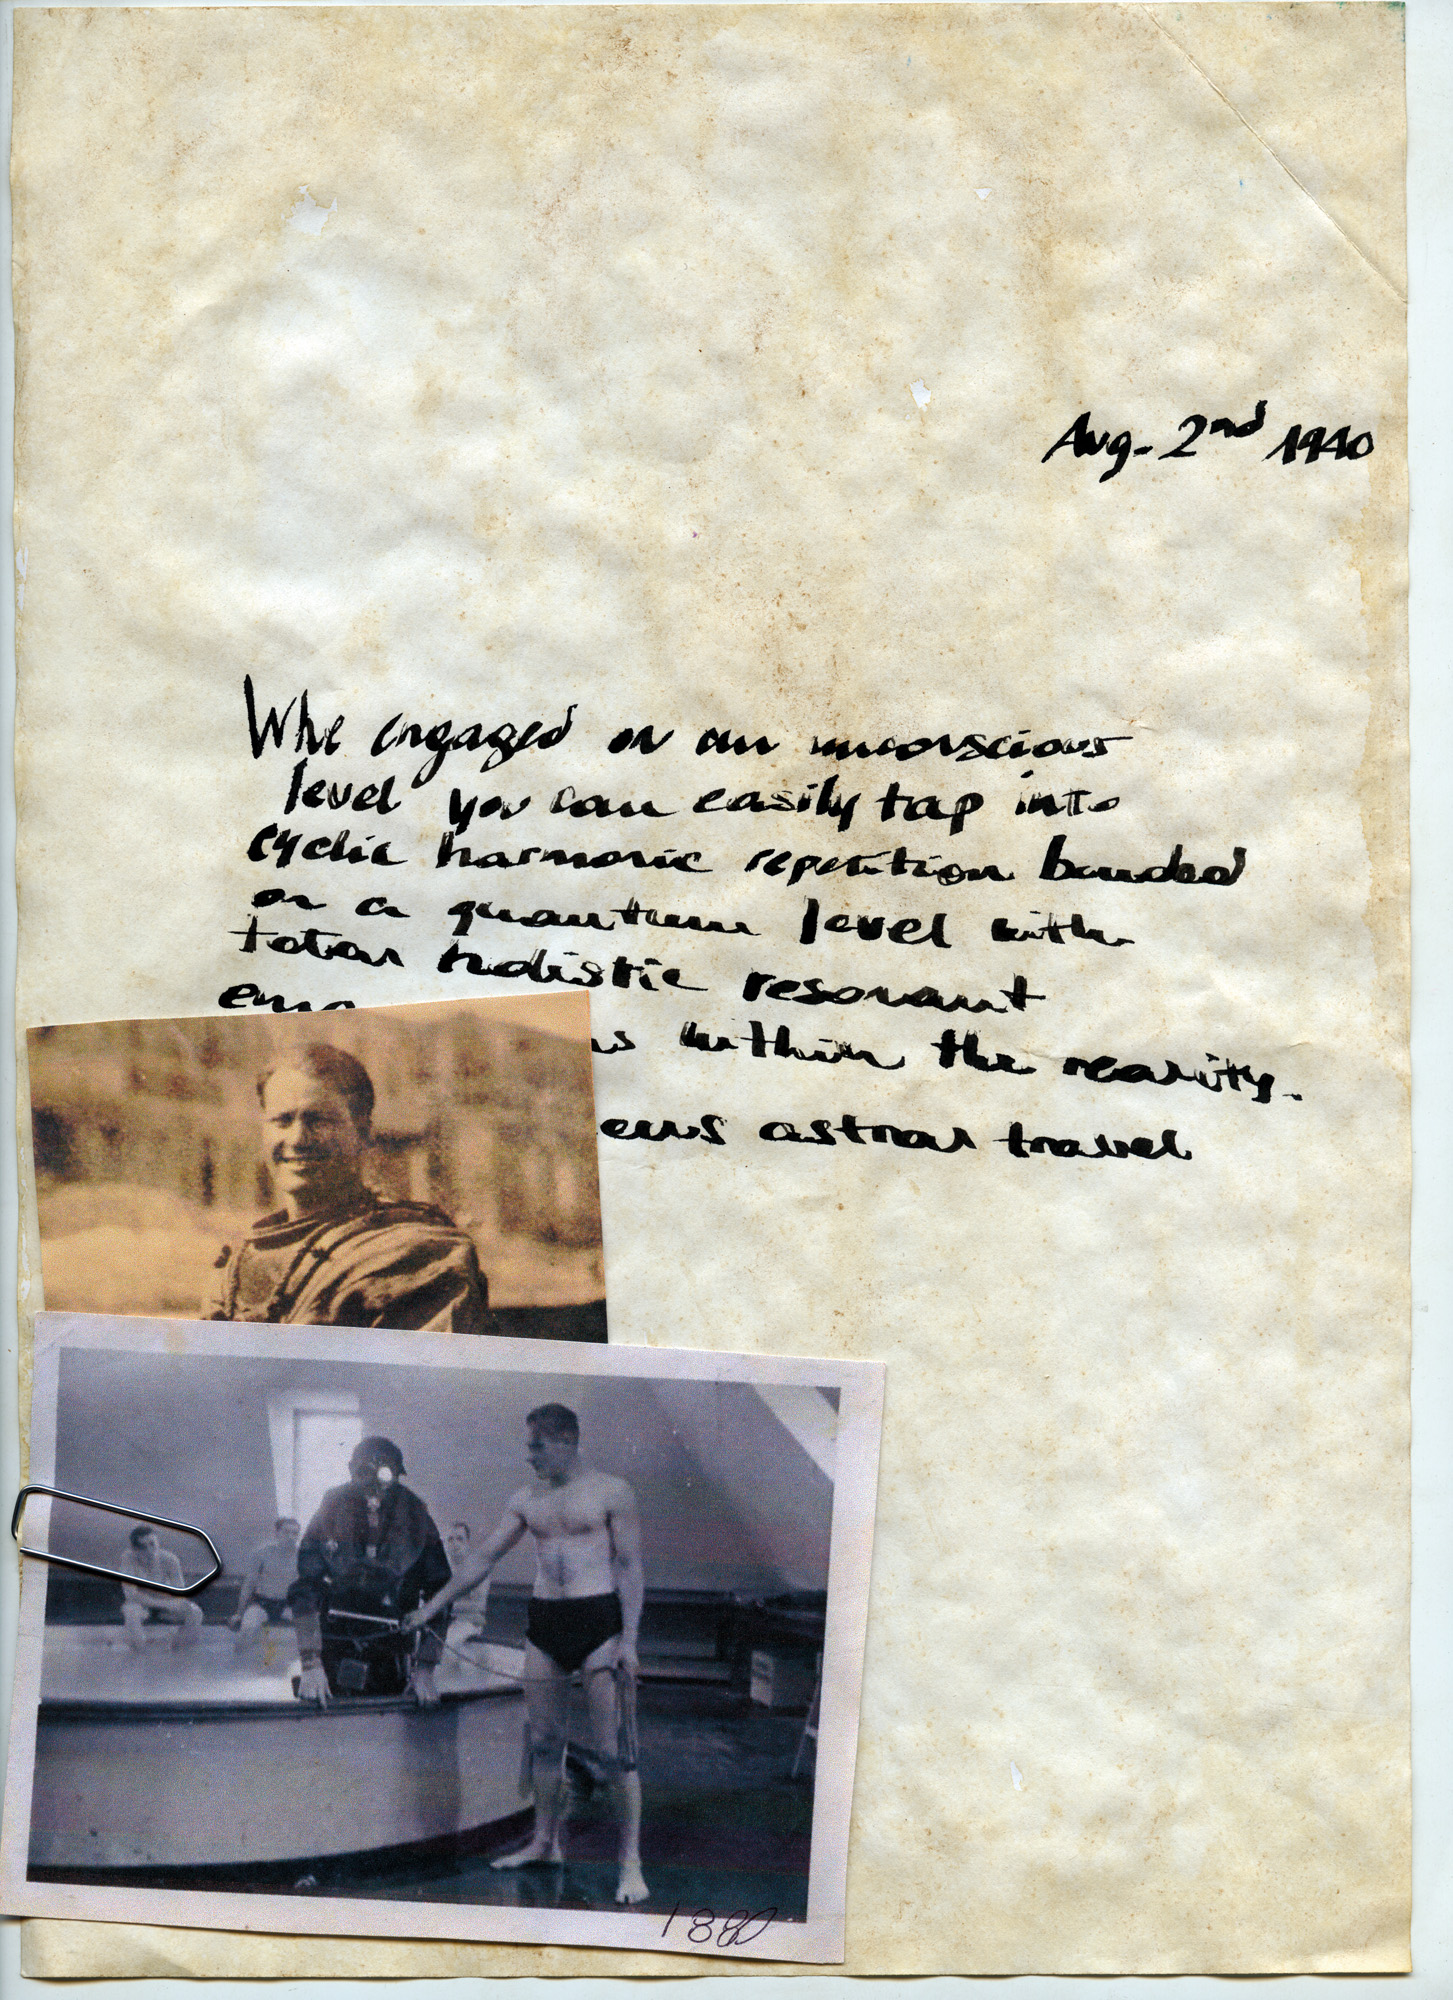 Aug. 2nd 1940
Whe engaged on an unconscious
level you can easily tap into
cyclic harmonic repetition banded
on a quantum level with
total holistic resonant
within the reality.
astral travel
1880